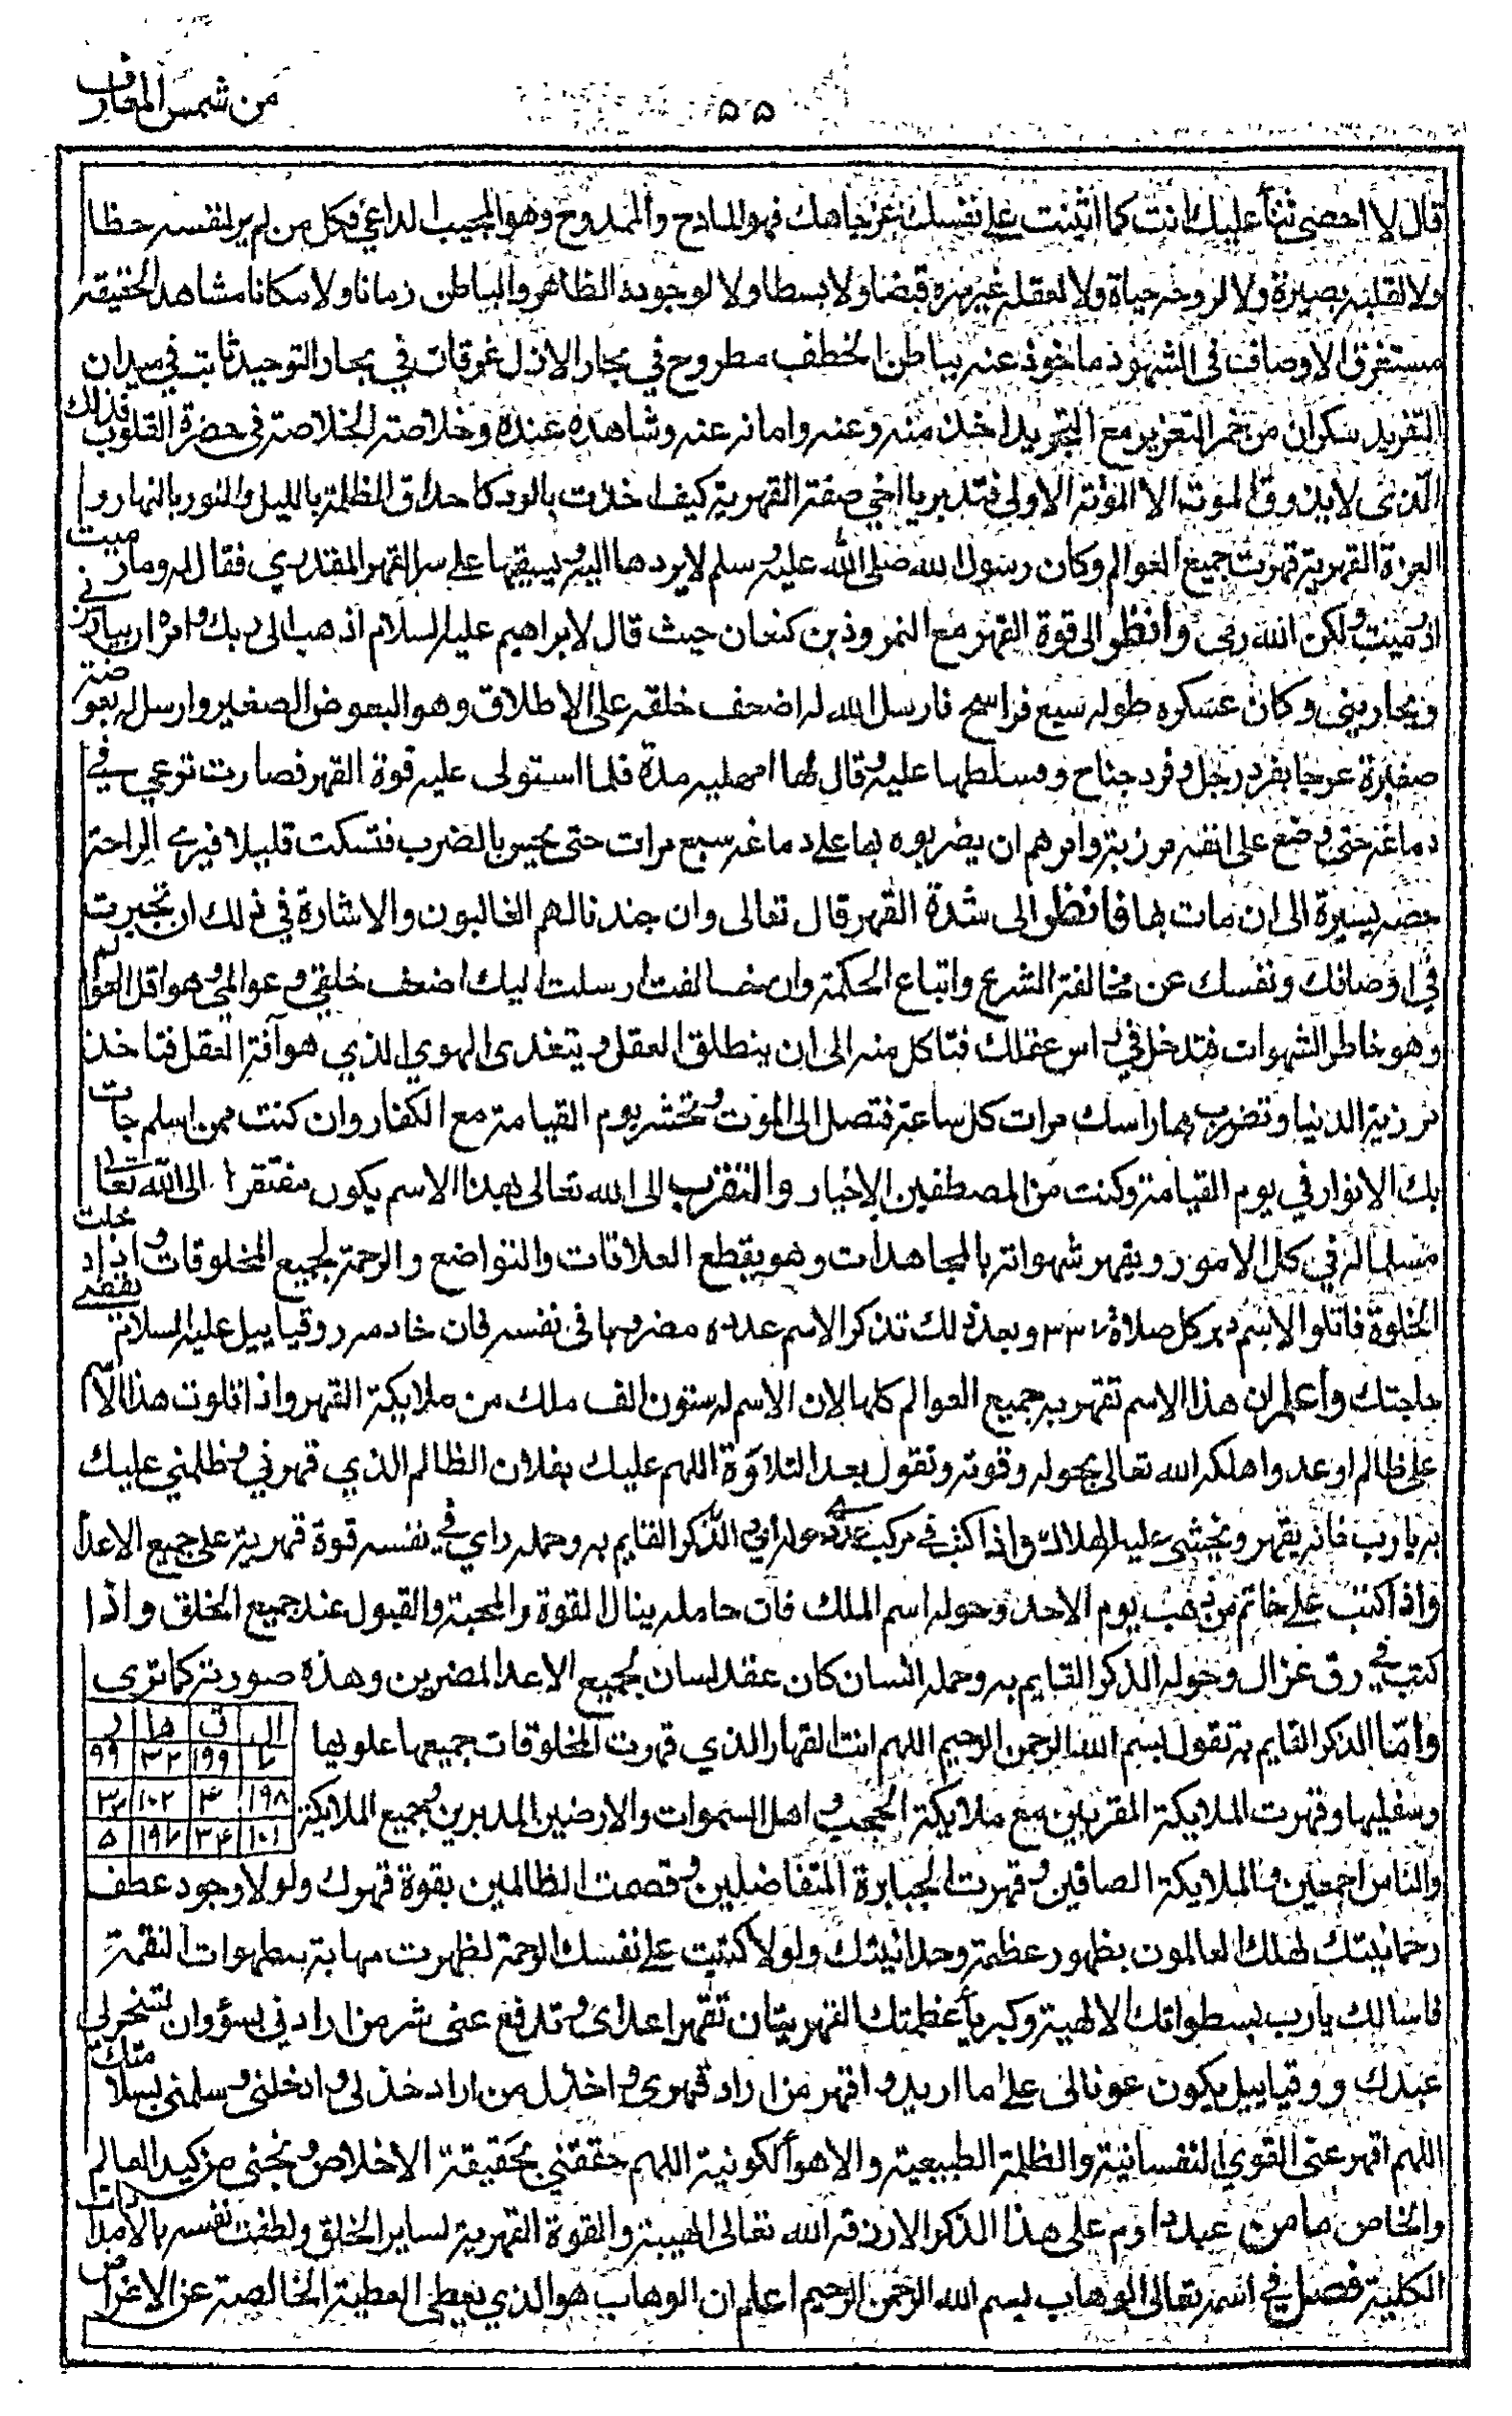 من شمس المعارف
۵۵
قال لا احصى ثنأ عليك انت كما اثنيت على نفسك عز جاهك فهو المادح والممدوح وهو المجيب الداعي فكل من لم ير لنفسه حظا
ولا لقلبه بصيرة ولا لروحه حياة ولا لعقله غيره قبضا ولا بسطا ولا لوجوده الظاهر والباطن زمانا ولا مكانا مشاهد الحقيقة
مستغرق الاوصاف فى الشهود ماخوذ عنه بباطن الخطف مطروح في بحار الازل غرقان في بحار التوحيد ثابت في ميدان
التفريد سكران من خمر التعزير مع التجريد اخذ منه وعنه وامانه عنه وشاهده عنده وخلاصته الخلاصة فى حضرة القلوب فذلك
الذى لا يذوق الموت الا الموتة الاولى فتدبر يا اخي صفة القهرية كيف اخذت بالود كاحداق الظلمة بالليل والنور بالنهار و
العزة القهرية قهرت جميع العوالم وكان رسول الله صلى الله عليه وسلم لا يردها اليه يبقيها على سر القهر المقتدري فقال له وما رميت
اذ رميت ولكن الله رمى وانظر الى قوة القهر مع النمروذ بن كنعان حيث قال لابراهيم عليه السلام اذهب الى ربك وامره ان يبارزني
ويحاربنى وكان عسكره طوله سبع فراسخ فارسل الله له اضعف خلقه على الاطلاق وهو البعوض الصغير وارسل له بعوضة
صغيرة عرجا بفرد رجل وفرد جناح وسلطها عليه وقال لها امهليه مدة فلما استولى عليه قوة القهر فصارت ترعى في
دماغه حتى وضع على انفه مرزبة وامرهم ان يضربوه بها على دماغه سبع مرات حتى يحس بالضرب فتسكت قليلا فيرى الراحة
حصة يسيرة الى ان مات بها فانظر الى شدة القهر قال تعالى وان جندنا لهم الغالبون والاشارة في ذلك ان تجبرت
في اوصافك ونفسك عن مخالفة الشرع واتباع الحكمة وان خالفت ارسلت اليك اضعف خلقي وعوالمي وهو اقل العوالم
وهو خاطر الشهوات فتدخل في راس عقلك فتاكل منه الى ان ينطلق العقل ويتغدى الهوي الذي هو آفة العقل فتاخذ
مرزبة الدنيا وتضرب بها راسك مرات كل ساعة فتصل الى الموت وتحشر يوم القيامة مع الكفار وان كنت ممن اسلم جات
بك الانوار في يوم القيامة وكنت من المصطفين الاخيار والتقرب الى الله تعالى بهذا الاسم يكون مفتقرا الى الله تعالى
مسلما له في كل الامور ويقهر شهواته بالمجاهدات وهو يقطع العلاقات والتواضع والرحمة لجميع المخلوقات واذا دخلت
الخلوة فاتلوا الاسم دبر كل صلاة ٣٣٧ وبعد ذلك تذكر الاسم عدده مضروبا فى نفسه فان خادمه روقياييل عليه السلام يقضى
حاجتك وأعلم ان هذا الاسم تقهر به جميع العوالم كلها لان الاسم له ستون الف ملك من ملايكة القهر واذا تلوت هذا الاسم
على ظالم او عدو اهلكه الله تعالى بحوله وقوته وتقول بعد التلاوة اللهم عليك بفلان الظالم الذي قهرني وظلمني عليك
به يا رب فانه يقهر ويخشى عليه الهلاك واذا كتب في مركب عددي حوله الذكر القايم به وحمله راي في نفسه قوة قهرية على جميع الاعدا
واذا كتب على خاتم من ذهب يوم الاحد وحوله اسم الملك فان حامله ينال القوة والمحبة والقبول عند جميع الخلق واذا
كتب في رق غزال وحوله الذكر القايم به وحمله انسان كان عقد لسان لجميع الاعدا المضرين وهذه صورته كما ترى
وامّا الذكر القايم به تقول بسم الله الرحمن الرحيم اللهم انت القهار الذي قهرت المخلوقات جميعها علويها
وسفليها وقهرت الملايكة المقربين مع ملايكة الحجب واهل السموات والارضين المدبرين وجميع الملايكة
ال ق ها ر
٧ ١٩٩ ٣٢ ٩٩
١٩٨ ۴ ١٠٢ ٣٣
١٠١ ٣۴ ١٩٧ ۵
والناس اجمعين والملايكة الصافين وقهرت الجبابرة المتفاضلين وقصمت الظالمين بقوة قهرك ولولا وجود عطف
رحمانيتك لهلك العالمون بظهور عظمة وحدانيتك ولولا كتبت على نفسك الرحمة لظهرت مهابة بسطوات النقمة
فاسالك يا رب بسطواتك الالهية وكبريا عظمتك القهرية ان تقهر اعداى وتدفع عنى شر من ارادني بسؤ وان تسخر لي
عبدك روقياييل يكون عونا لى على ما اريد واقهر من اراد قهرى واخذل من اراد خذلى وادخلنى وسلمنى بسلامتك
اللهم اقهر عنى القوي النفسانية والظلمة الطبيعية والاهوا الكونية اللهم حققني بحقيقة الاخلاص ونجنى من كيد العالم
والخاص ما من عبد داوم على هذا الذكر الا رزقه الله تعالى الهيبة والقوة القهرية لساير الخلق ولطفت نفسه بالامدادات
الكلية فصل في اسمه تعالى الوهاب بسم الله الرحمن الرحيم اعلم ان الوهاب هو الذي يعطى العطية الخالصة عن الاغراض